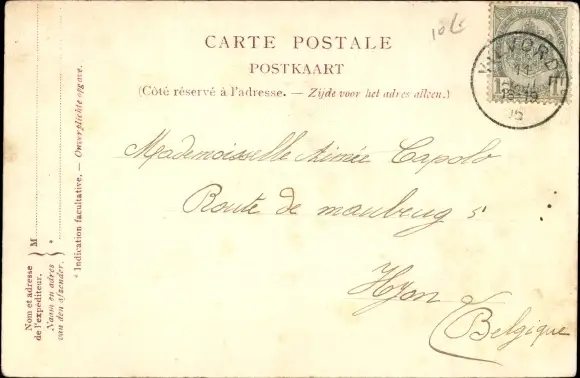 10 f
CARTE POSTALE
POSTKAART
(Côté réservé à l'adresse. — Zijde voor het adres alleen.)
VILVORDE
11
18-19
Mademoisselle Aimée Capolo
Route de maubeug 5
Hyon
(Belgique
Nom et adresse
de l'expéditeur.
Naam en adres
van den afzender.
M
*
* Indication facultative. — Onverplichte opgave.